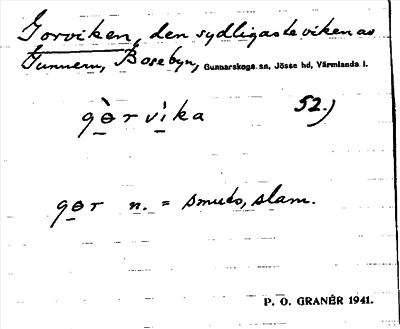 Gorviken, den sydligaste viken av
Gunnern, Bosebyn, Gunnarskogs sn, Jösse hd, Värmlands l.
gɵ̀rvìka 52.)
gɵr n. = smuts, slam.
P. O. GRANÉR 1941.